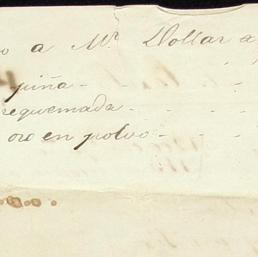 o a Mr Dollar a
piña - - -
requemada - - -
oro en polvo - - -